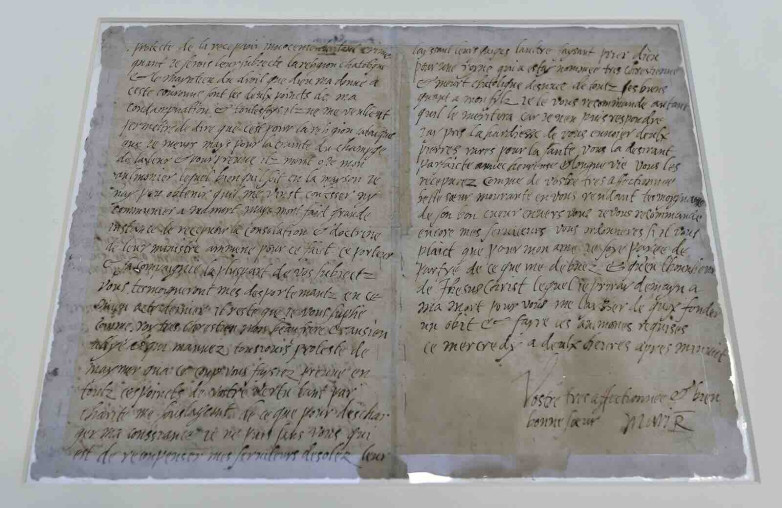 proteste de la recepvoir innocente de crime
quant je serois leur subjecte la religion chatolique
& le mayntien du droit que dieu ma donne a
ceste couronne sont les deulx points de ma
condampnation & toutesfoys ilz ne me veulent
permettre de dire que cest pour la religion catolique
que je meurs mays pour la crainte du champge
de la leur & pour preuve ilz mont oste mon
aulmonier lequel bien quil soit en la mayson je
nay peu obtenir quil me vinst confesser ny
communier a ma mort mays mont faict grande
instance de recepvoir la consolation & doctrine
de leur ministre ammene pour ce faict ce porteur
& sa compaignie la pluspart de vos subjectz
vous tesmoigneront mes desportemantz en ce
mien acte dernier il reste que je vous suplie
comme roy tres chrestien mon beau frere & ansien
allye & qui mavvez tousjours proteste de
maymer qua ce coup vous faysiez preuve en
toutz ces points de vostre vertu tant par
charite me soulageant de ce que pour deschar
ger ma conssiance je ne puis sans vous qui
est de recompenser mes serviteurs desolez leur
laysant leurs gaiges laultre faysant prier dieu
pour une royne qui a estay nommee tres chrestienne
& meurt chatolique desnuee de toutz ses biens
quant a mon filz je le vous recommande autant
quil le meritera car je nen puis respondre
jay pris la hardiesse de vous envoier deulx
pierres rares pour la sante vous la desirant
parfaicte avvec heurese & longue vie vous les
recepvrez comme de vostre tres affectionnee
belle soeur mourante en vous rendant tesmoygnasge
de son bon cueur envers vous je vous recommande
encore mes serviteurs vous ordonneres si il vous
plaict que pour mon ame je soye payee de
partye de ce que me debvez & quen lhonneur
de Jhesus Christ lequel je priray demayn a
ma mort pour vous me laysser de quoy fonder
un obit & fayre les aumosnes requises
ce mercredy a deulx heures apres minuit
Vostre tres affectionnee & bien
bonne soeur MARI R